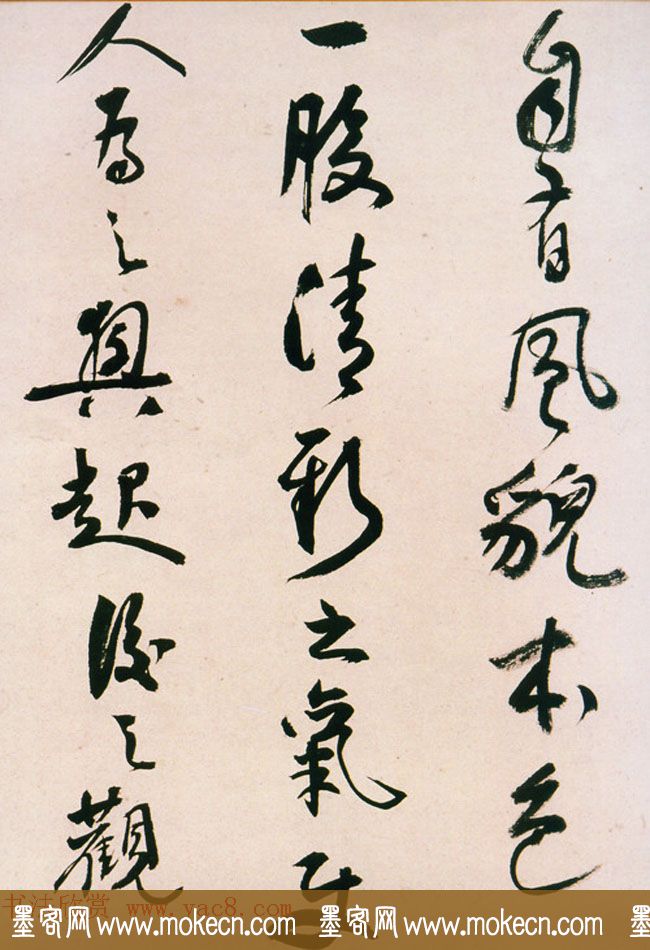 自有風貌本色
一股清新之氣
人為之興起後之觀
书法欣赏 www.yac8.com
墨客网 www.mokecn.com 墨客网 www.mokecn.com